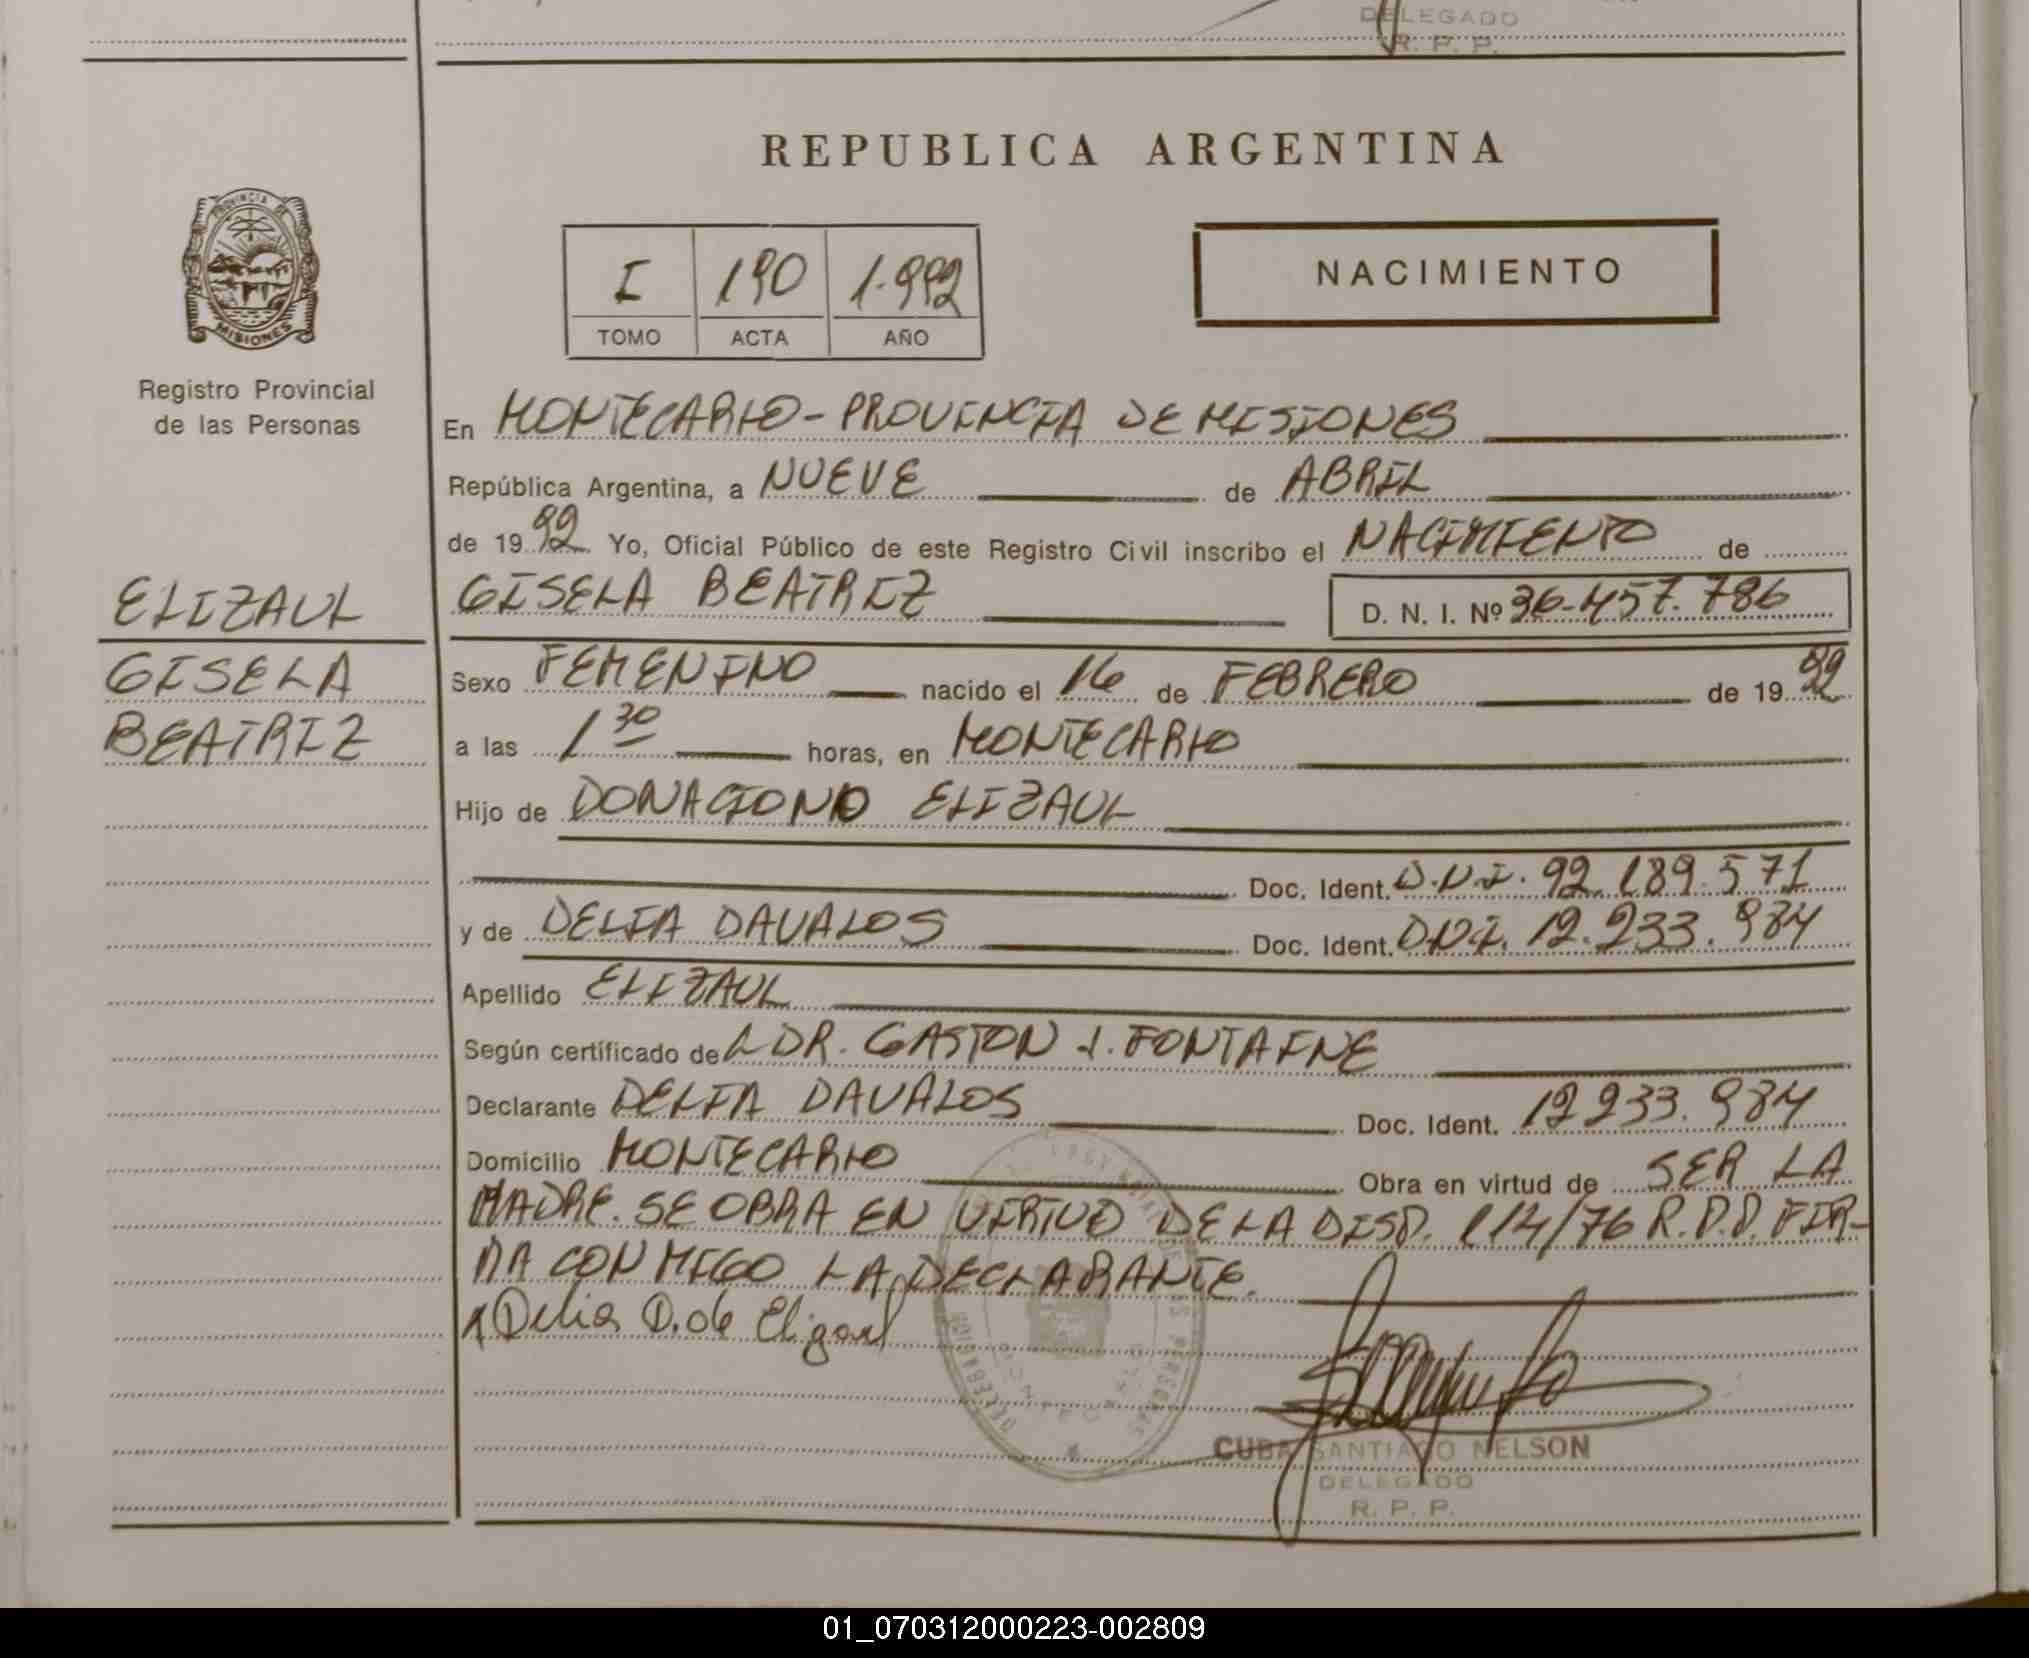 DELEGADO
R. P. P.
REPUBLICA ARGENTINA
PROVINCIA DE
MISIONES
Registro Provincial
de las Personas
I 190 1.992
TOMO ACTA AÑO
NACIMIENTO
En MONTECARLO - PROVINCIA DE MISIONES
República Argentina, a NUEVE de ABRIL
de 1992 Yo, Oficial Público de este Registro Civil inscribo el NACIMIENTO de
ELIZAUL GISELA BEATRIZ D. N. I. Nº 36.457.786
GISELA Sexo FEMENINO nacido el 16 de FEBRERO de 1992
BEATRIZ a las 1 30 horas, en MONTECARLO
Hijo de DONACIONO ELIZAUL
Doc. Ident. D.N.I. 92.189.571
y de DELIA DAVALOS Doc. Ident. D.N.I. 12.233.984
Apellido ELIZAUL
Según certificado de L DR. GASTON J. FONTAINE
Declarante DELIA DAVALOS Doc. Ident. 12 233.984
Domicilio MONTECARLO Obra en virtud de SER LA
MADRE. SE OBRA EN VIRTUD DE LA DISP. 114/76 R.P.P. FIR-
MA CONMIGO LA DECLARANTE.
x Delia D. de Elizaul
CUBA SANTIAGO NELSON
DELEGADO
R. P. P.
01_070312000223-002809